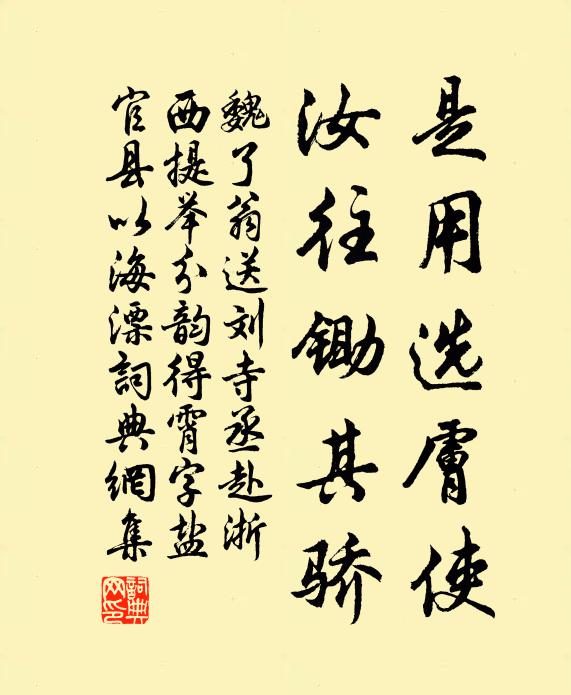 是用选膚使
汝往锄其骄
魏了翁送刘寺丞赴浙
西提举分韵得霄字盐
官县以海漂詞典網集
詞典
网印